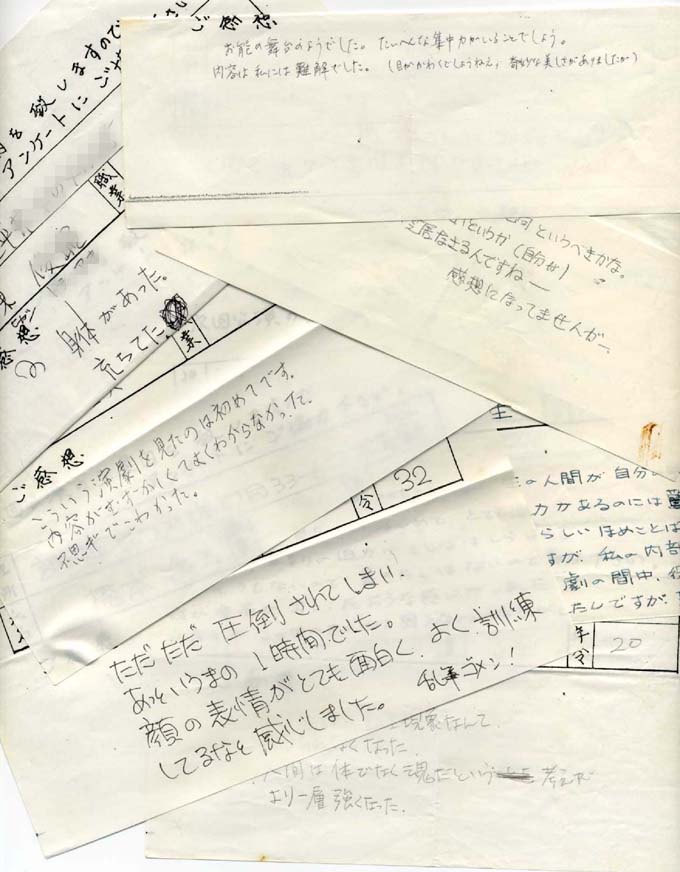 ご感想
お能の舞台のようでした。たいへんな集中力がいることでしょう。
内容は私には難解でした。(目がかわくでしょうねえ,奇妙な美しさがありましたが)
致しますので
アンケートにご
職業
感想
身体があった。
というべきかな。
というか(自分が)
なさるんですねー
感想になってませんがー
業
ご感想
こういう演劇を見たのは初めてです。
内容がむずかしくてよくわからなかった。
不思ギでこわかった。
令
32
の人間が自分の
力があるのには
らしいほめことば
すが、私の内部
劇の間中、
たんですが、
年令
20
ただただ圧倒されてしまい、
あっというまの1時間でした。
顔の表情がとても面白く、よく訓練
してるなと感じました。
乱筆ゴメン!
現象なんて、
よくなった。
人間は体でなく魂だという考えが
より一層強くなった。